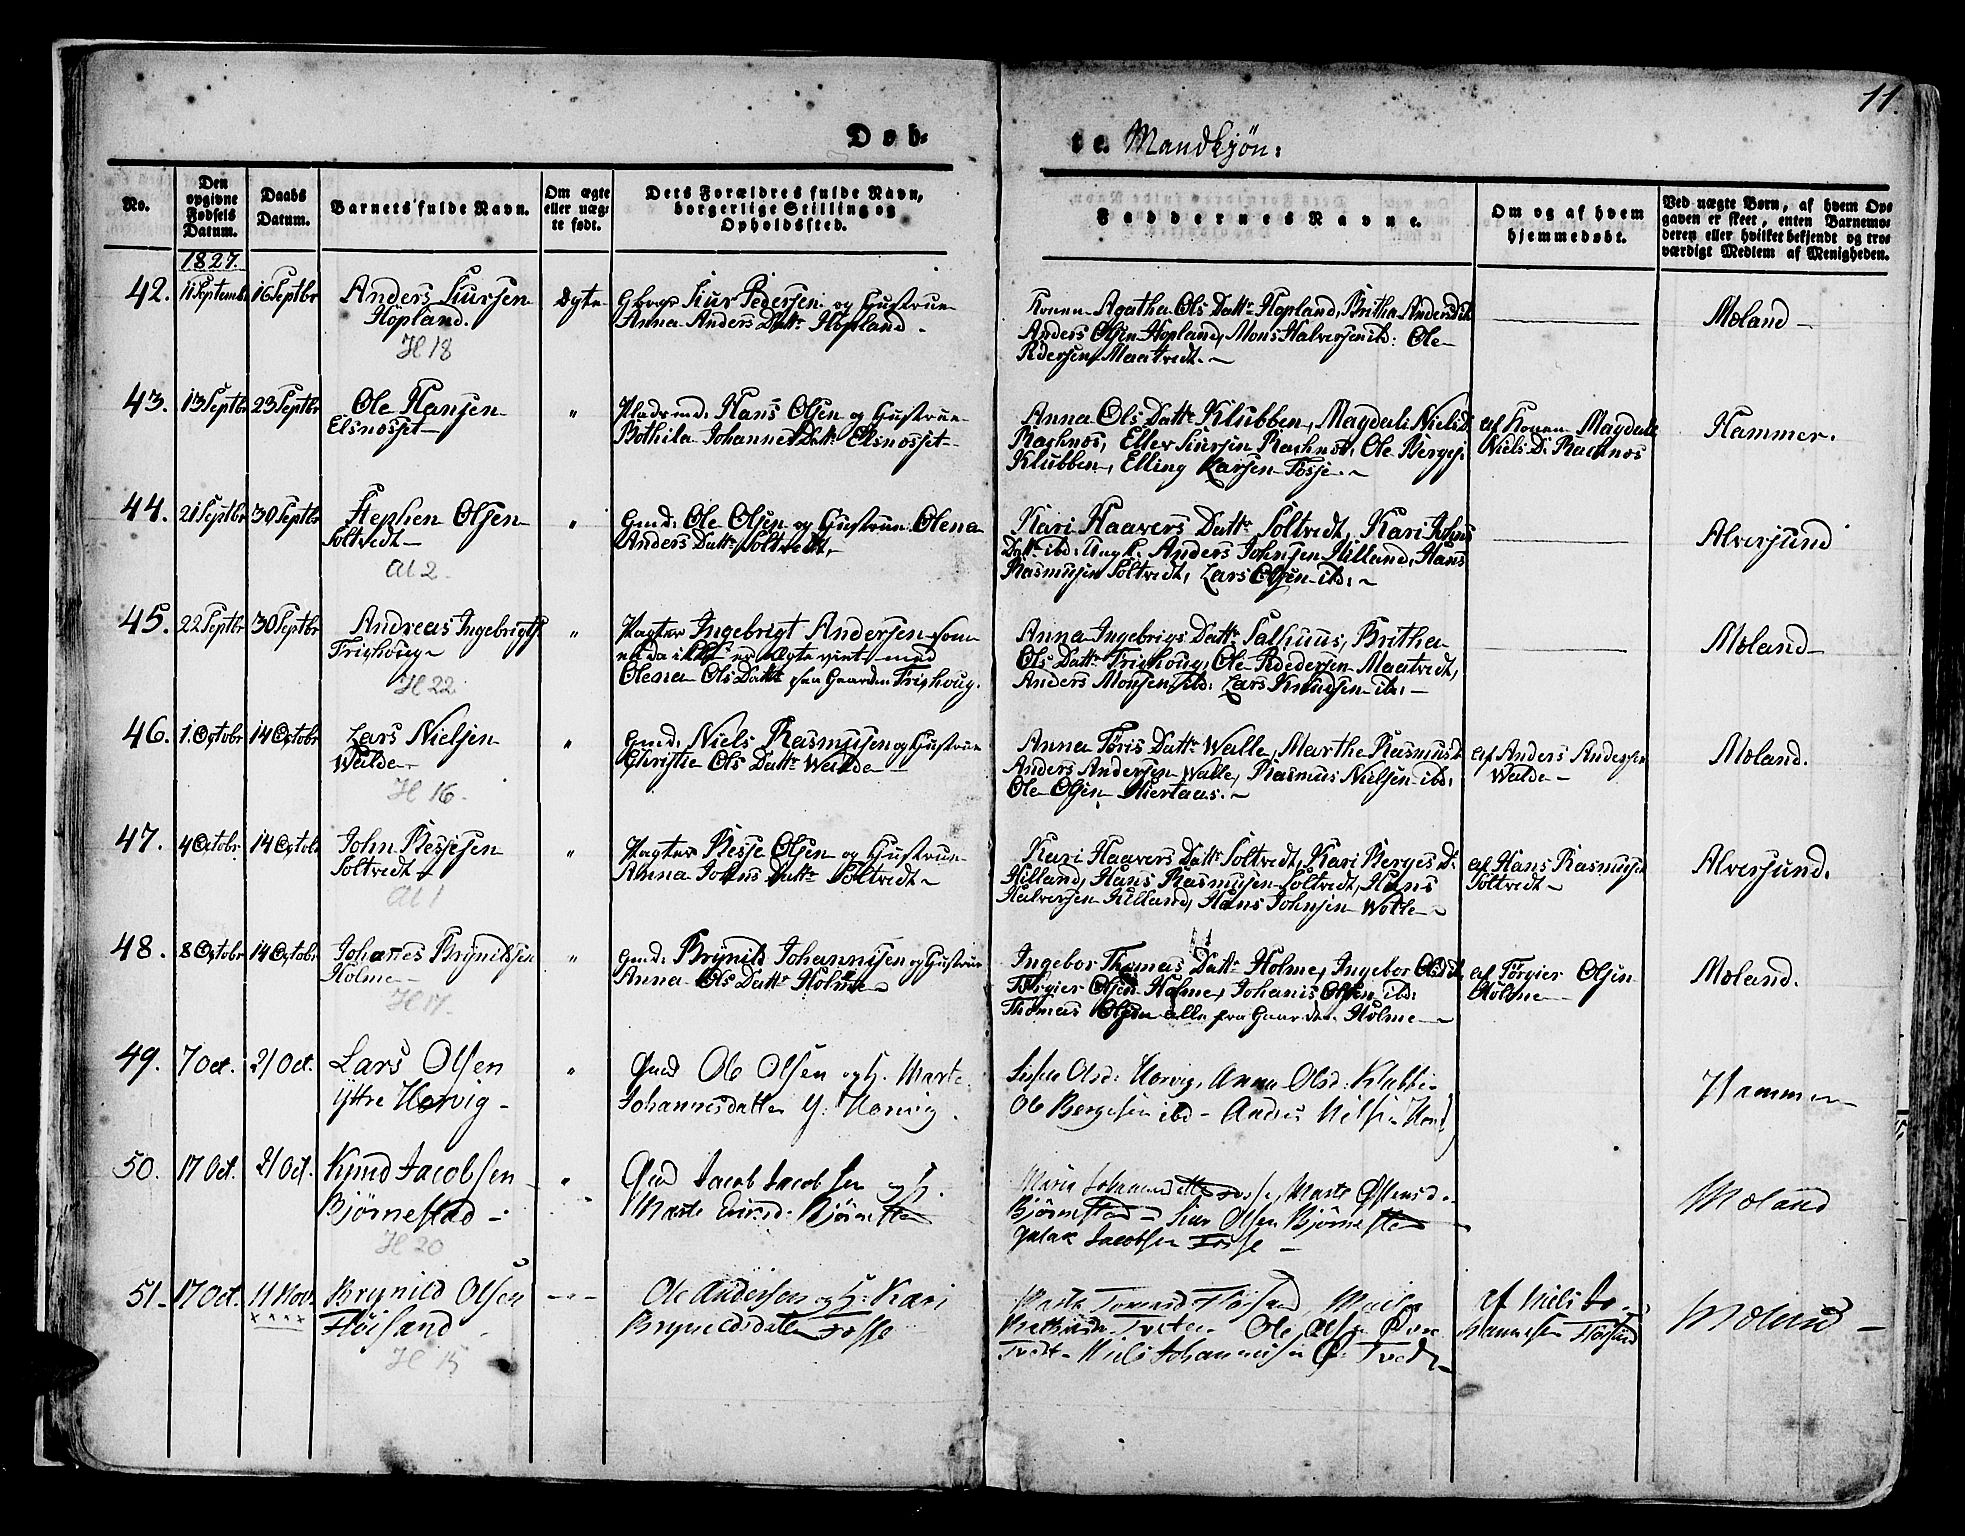 11.
Døb-
te. Mandkjøn:
No.
Den opgivne Fødsels Datum.
Daabs Datum.
Barnets fulde Navn.
Om ægte eller uægte født.
Dets Forældres fulde Navn, borgerlige Stilling og Opholdssted.
Faddernes Navne.
Om og af hvem hjemmedøbt.
Ved uægte Børn, af hvem Opgaven er skeet, enten Barnemoderen eller hvilket bekjendt og troværdigt Medlem af Menigheden.
1827.
42. 11 Septembr 16 Septbr Anders Siursen
Hopland.
H 18
Ægte
Siur Pedersen og Hustrue
Anna Anders Datt: Hopland
Konen Agatha Ols Datt: Hopland, Britha Andersd: ibd
Anders Olsen Hopland, Mons Halversen ibd: Ole
Pedersen Maatvedt.
Moland
43. 13 Septbr 23 Septbr Ole Hansen
Elsnosset
"
Pladsmd. Hans Olsen og Hustrue
Bothila Johannes Datt: Elsnosset
Anna Ols Datt: Klubben, Magdali Niels D.
Rachnos, Eller Siursen Rachnos, Ole Berges:
Klubben, Elling Larsen Tosse.
af Konen Magdali
Niels D: Rachnos
Hammer.
44. 21 Septbr 30 Septbr Stephen Olsen
Soltvedt
Al 2
"
Gmd: Ole Olsen og Hustrue Olena
Anders Datt: Soltvedt.
Kari Haavers Datt: Soltvedt, Kari Johns
Datt: ibd: Ungk. Anders Johnsen Hilland, Hans
Rasmusen Soltvedt, Lars Olsen ibd:
Alversund
45. 22 Septbr 30 Septbr Andreas Ingebrigts
Frishoug
H 22
"
Pagter Ingebrigt Andersen som
er Ægteviet med
Olena Ols Datt: paa Gaarden Frishoug.
Anna Ingebrigs Datt: Salhuus, Britha
Ols Datt: Frishoug, Ole Pedersen Maatvedt,
Anders Monsen ibd: Lars Knudsen ib:
Moland
46. 1. Octobr 14 Octobr Lars Nielsen
Walde
H 16.
"
Gmd: Niels Rasmusen og Hustrue
Christie Ols Datt: Walde
Anna Tøris Datt: Walle, Marthe Rasmusd:
Anders Andersen Walle, Rasmus Nielsen ibd:
Ole Olsen Hiertaas.
af Anders Andersen
Walde
Moland.
47. 4 Octobr. 14 Octobr John Bessesen
Soltvedt
Al 1
"
Pagter Besse Olsen og Hustrue
Anna Johns Datt: Soltvedt
Kari Haavers Datt: Soltvedt, Kari Berges D:
Hilland, Hans Rasmusen Soltvedt, Hans
Halversen Hilland, Hans Johnsen Wolle
af Hans Rasmusen
Soltvedt
Alversund.
48. 8 Octobr 14 Octobr. Johanes Brynildsen
Holme
H 17.
"
Gmd: Brynild Johannisen og Hustrue
Anna Ols Datt: Holme
Ingebor Thomas Datt: Holme, Ingebor Olsd: ib
Torgier Olsen Holme, Johanis Olsen ibd:
Thomas Olsen alle fra Gaarden Holme
af Torgier Olsen
Holme
Moland.
49. 7 Oct. 21 Oct. Lars Olsen
Yttre Horvig
"
Gmd Ole Olsen og H. Marte
Johannesdatter Y: Horvig.
Olsd: Horvig, Anna Olsd: Klubbe
Ole Bergesen ibd - Anders Nilsen Horv
Hammer
50. 17 Oct. 21 Oct. Knud Jacobsen
Bjørnestad
H 20
"
Gmd Jacob Jacobsen og H.
Marte Bjørnestad
Marie Johannesdatter Fosse, Marte Østensd.
Bjørnestad - Siur Olsen Bjørnestad
Jacobsen Fosse
Moland
51. 17 Oct. 11 Nov. Brynild Olsen
xxxx
Fløisand
H 15
"
Ole Andersen og H: Kari
Brynildsdatter Fosse
Fløisand,
Tveten Ole Olsen Øvre
Tvedt - Niels Johannesen Ø: Tvedt
af Niels Jo-
hannesen Fløisand
Moland